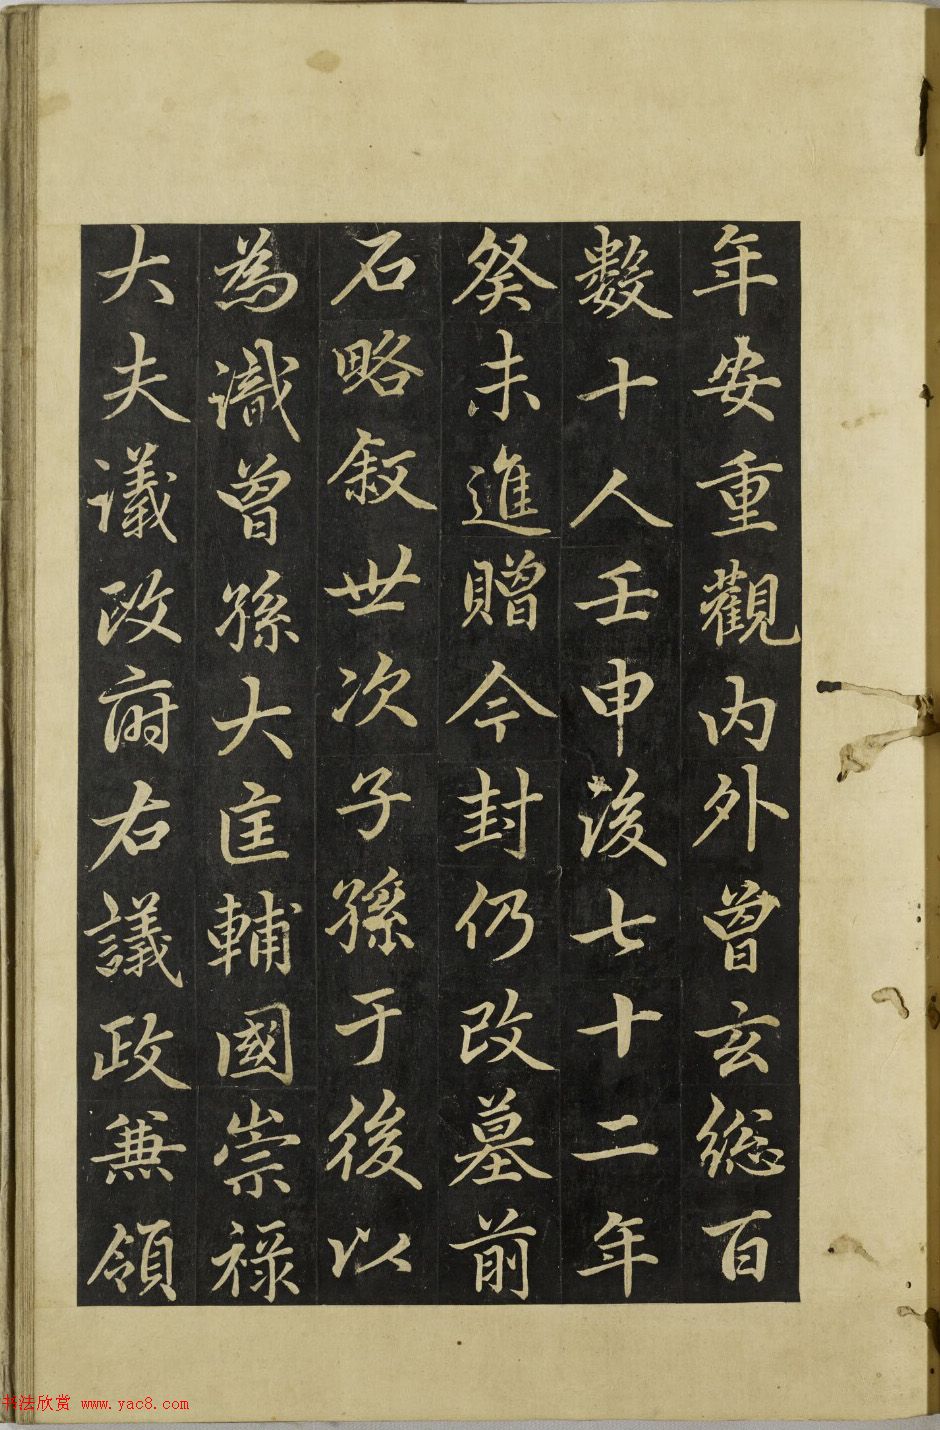 年安重觀内外曾玄総百
數十人壬申後七十二年
癸未進贈今封仍改墓前
石略敘世次子孫于後以
為識曾孫大匡輔國崇禄
大夫議政府右議政兼領
书法欣赏 www.yac8.com